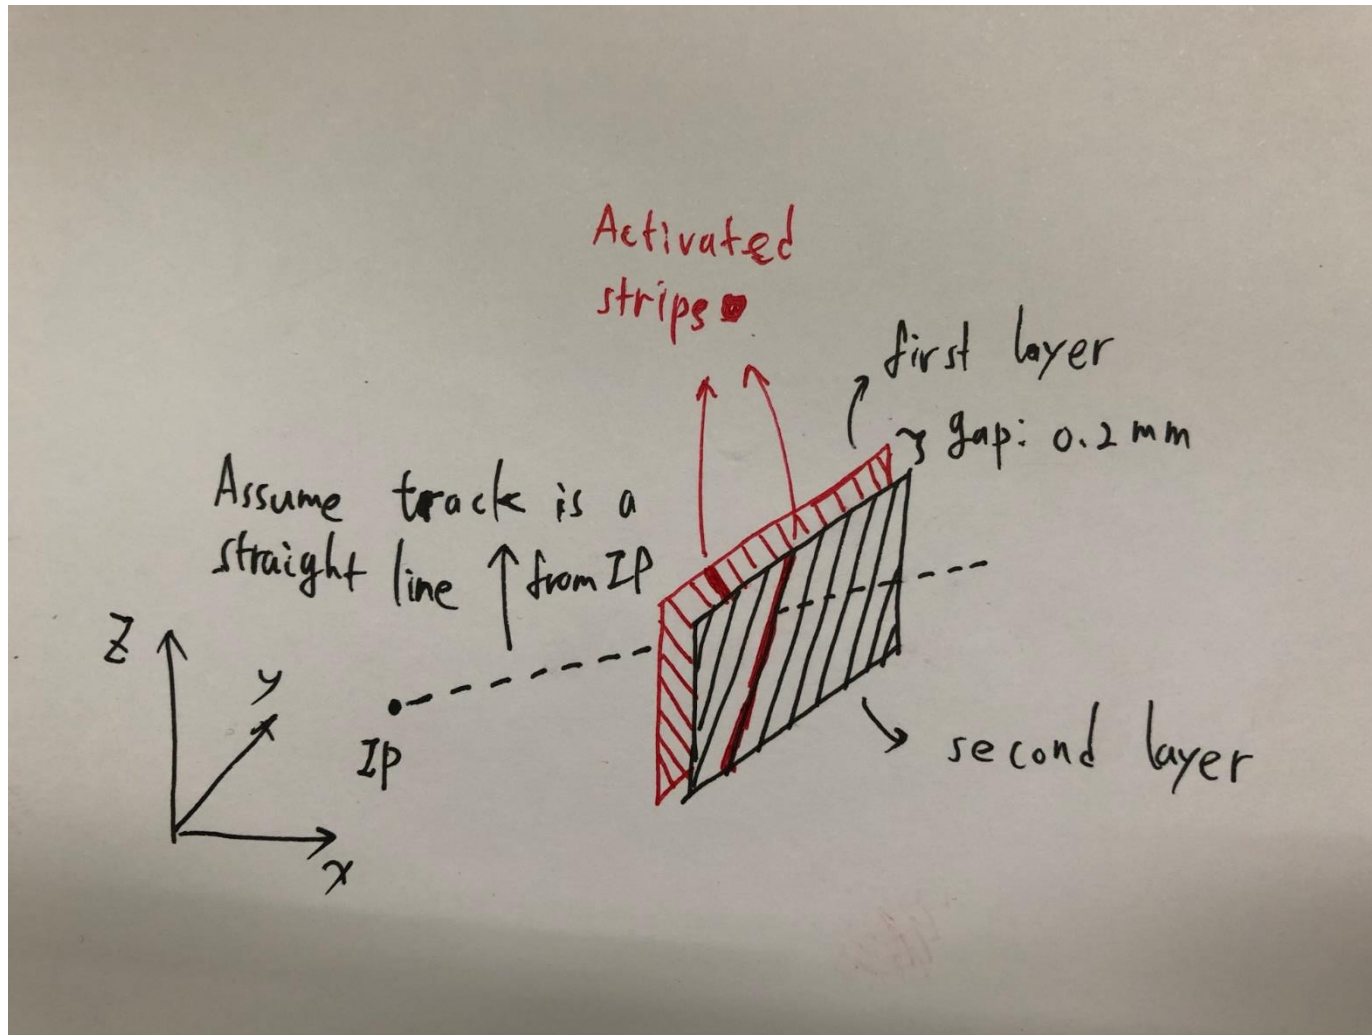 Activated
strips
first layer
gap: 0.2 mm
Assume track is a
straight line
from IP
Z
y
x
IP
second layer